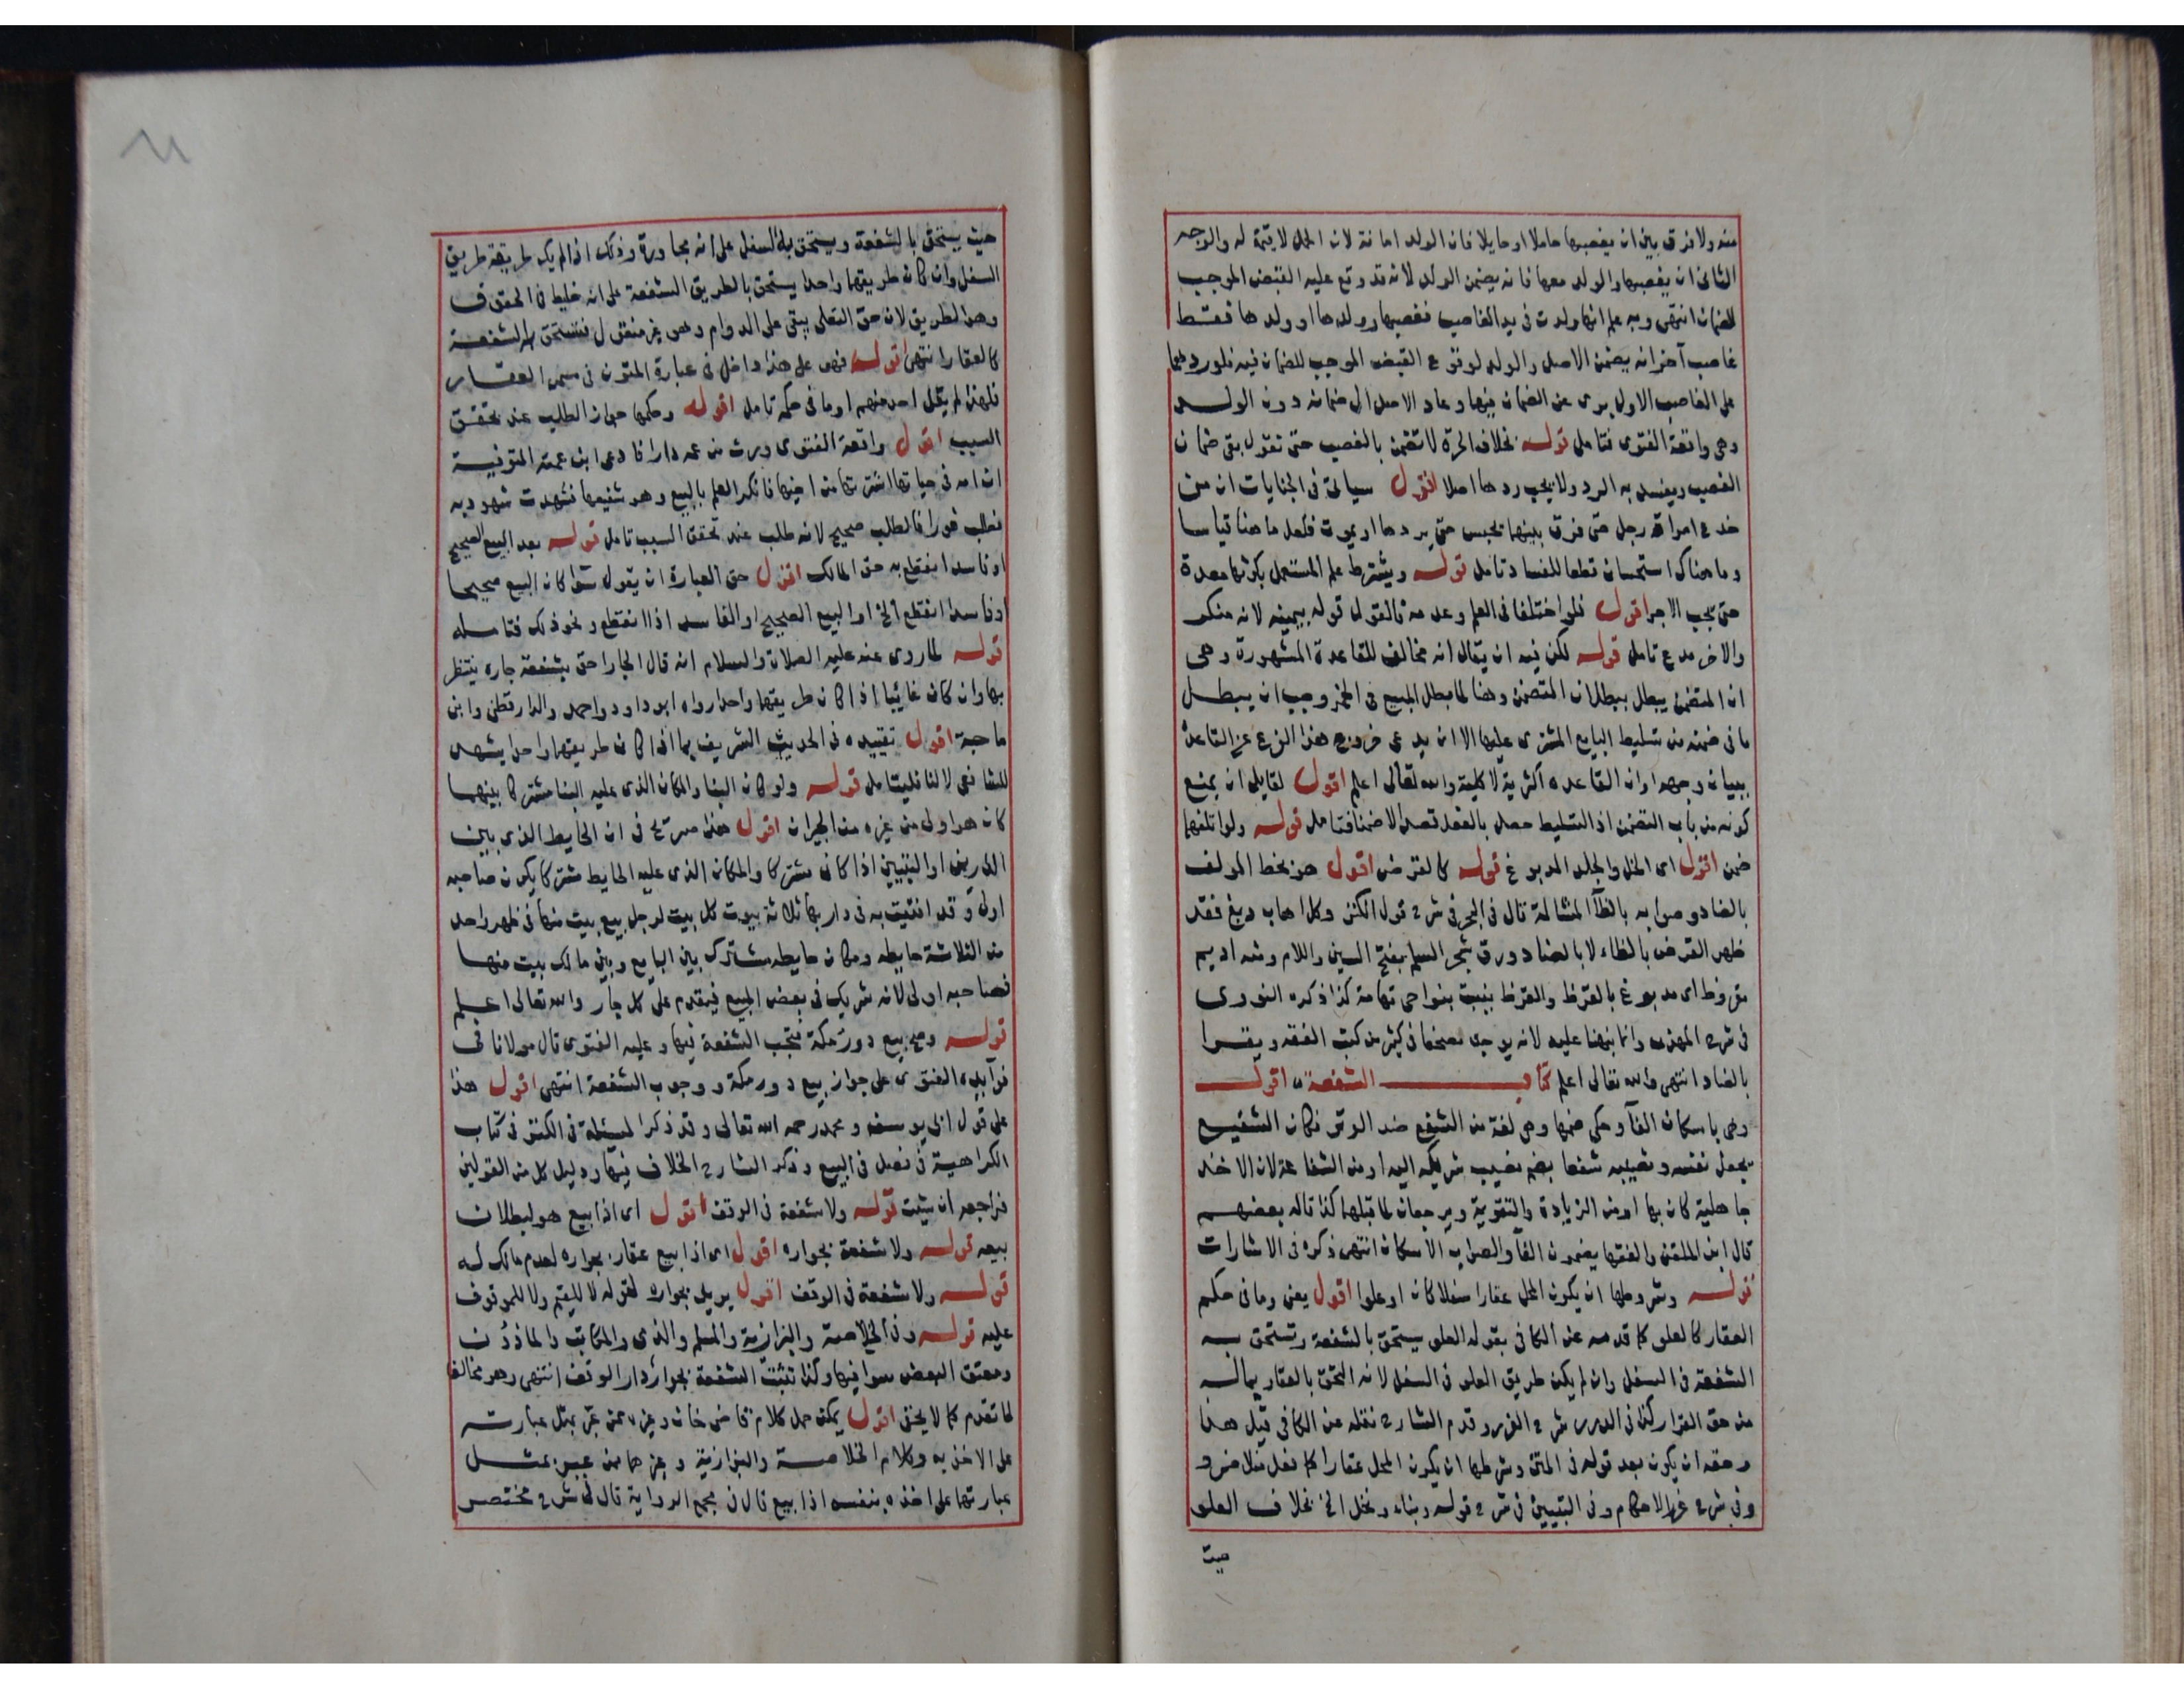 منه ولا فرق بين ان يغصبها حاملا او حايلا فان الولد امانة لان الحمل لا قيمة له والوجه
الثانى ان يغصبها والولد معها فانه يضمن الولد لانه قد وقع عليه القبض الموجب
للضمان انتهى وبه علم انها ولدت فى يد الغاصب فغصبها وولدها او ولدها فقط
غاصب آخر انه يضمن الاصل والولد لوقوع القبض الموجب للضمان فيه فلو ردهما
على الغاصب الاول برى عن الضمان فيها وعاد الاصل الى ضمانه دون الولد
وهى واقعة الفتوى فتامل قوله بخلاف الحرة لا تضمن بالغصب حتى نقول بقى ضمان
الغصب ويفسد به الرد ولا يجب ردها اصلا اقول سياتى فى الجنايات ان من
خدع امراة رجل حتى فرق بينهما يحبس حتى يردها او يموت فلعل ما هنا قياسا
وما هناك استحسان قطعا للفساد تامل قوله ويشترط علم المستعمل بكونها معدة
حتى يجب الاجر اقول فلو اختلفا فى العلم وعدمه فالقول قوله بيمينه لانه منكر
والاخر مدع تامل قوله لكن فيه ان يقال انه مخالف للقاعدة المشهورة وهى
ان المتضمن يبطل ببطلان المتضمن وهنا لما بطل المبيع فى الخمر وجب ان يبطل
ما فى ضمنه من تسليط البايع المشترى عليها الا ان يدعى خروج هذا الفرع عن القاعدة
ببيان وجهه او ان القاعده اكثرية لا كلية والله تعالى اعلم اقول لقايل ان يمنع
كونه من باب التضمن اذ التسليط حصل بالعقد قصدا لا ضمنا فتامل قوله ولو اتلفهما
ضمن اقول اى الخل والجلد المدبوغ قوله كالقرض اقول هو بخط المولف
بالضاد وصوابه بالظآ المشالة قال فى البحر فى شرح قول الكنز وكل اهاب دبغ فقد
طهر القرض بالظاء لا بالضاد ورق شجر السلم بفتح السين واللام ومنه اديم
مقروظ اى مدبوغ بالقرظ والقرظ ينبت بنواحى تهامة كذا ذكره النووى
فى شرح المهذب وانما نبهنا عليه لانه يوجد مصحفا فى كثير من كتب الفقه ويقرا
بالضاد انتهى والله تعالى اعلم كتاب الشفعة اقول
وهى باسكان الفآ وحكى ضمها وهى لغة من الشفع ضد الوتر فكان الشفيع
يجعل نفسه ونصيبه شفعا بضم نصيب شريكه اليه او من الشفاعة لان الاخذ
جاهلية كان بها او من الزيادة والتقوية ويرجعان لما قبلهما كذا قاله بعضهم
قال ابن الملقن والفقها يضمون الفآ والصواب الاسكان انتهى ذكره فى الاشارات
قوله وشروطها ان يكون المحل عقارا سفلا كان او علوا اقول يعنى وما فى حكم
العقار كالعلو كما قدمه عن الكافى بقوله العلو يستحق بالشفعة وتستحق به
الشفعة فى السفل وان لم يكن طريق العلو فى السفل لانه التحق بالعقار بماله
من حق القرار كذا فى الدرر شرح الغرر وقدم الشارح نقله عن الكافى قبل هذا
وحقه ان يكون بعد قوله فى المتن وشرطها ان يكون المحل عقارا كما فعل منلا خسرو
وفى شرح غرر الاحكام وفى التبيين فى شرح قوله وبناء ونخل الخ بخلاف العلو
حيث
حيث يستحق بالشفعة ويستحق به السفل على انه مجاورة وذلك اذا لم يكن طريقه طريق
السفل وان كان طريقهما واحدا يستحق بالطريق الشفعة على انه خليط فى الحقوق
وهو الطريق لان حق التعلى يبقى على الدوام وهو غير منقول فتستحق به الشفعة
كالعقار انتهى اقول فهو على هذا داخل فى عبارة المتون فى مسمى العقار
فلهذا لم يقل احد منهم او ما فى حكمه تامل اقوله وحكمها جواز الطلب عند تحقق
السبب اقول واقعة الفتوى ورث من عمه دارا فادعى ابن عمته المتوفية
ان امه فى حياتها اشترتها من اخيها فانكر العلم بالبيع وهو شفيعها فشهدت شهود به
فطلب فورا فالطلب صحيح لانه طلب عند تحقق السبب تامل قوله بعد البيع الصحيح
او فاسدا انقطع به حق المالك اقول حق العبارة ان يقول سوا كان البيع صحيحا
او فاسدا انقطع الخ او البيع الصحيح او الفاسد اذا انقطع ونحو ذلك فتامله
قوله لما روى عنه عليه الصلاة والسلام انه قال الجار احق بشفعة جاره ينتظر
بها وان كان غائبا اذا كان طريقهما واحدا رواه ابو داود واحمد والدارقطنى وابن
ماجة اقول تقييده فى الحديث الشريف بما اذا كان طريقهما واحدا يشهد
للشافعى لا لنا فليتامل قوله ولو كان البنا والمكان الذى عليه البنا مشتركا بينهما
كان هو اولى من غيره من الجيران اقول هذا صريح فى ان الحايط الذى بين
الدارين او البيتين اذا كان مشتركا والمكان الذى عليه الحايط مشتركا يكون صاحبه
اولى وقد افتيت به فى دار بها ثلاثة بيوت كل بيت لرجل بيع بيت منها فى ظهر واحد
من الثلاثة حايطه ومكان حايطه مشترك بين البايع وبين مالك بيت منها
فصاحبه اولى لانه شريك فى بعض المبيع فيقدم على كل جار والله تعالى اعلم
قوله وصح بيع دور مكة فتجب الشفعة فيها وعليه الفتوى قال مولانا فى
فوآيده الفتوى على جواز بيع دور مكة ووجوب الشفعة انتهى اقول هذا
على قول ابى يوسف ومحمد رحمه الله تعالى وقد ذكر المسئلة فى الكنز فى كتاب
الكراهية فى فصل فى البيع وذكر الشارح الخلاف فيها ودليل كل من القولين
فراجعه ان شيت قوله ولا شفعة فى الوقف اقول اى اذا بيع هو لبطلان
بيعه قوله ولا شفعة بجواره اقول اى اذا بيع عقار بجواره لعدم مالك له
قوله ولا شفعة فى الوقف اقول يريد بجواره لقوله لا للقيم ولا للموقوف
عليه قوله وفى الخلاصة والبزازية والمسلم والذمى والمكاتب والماذون
ومعتق البعض سوا فيها وكذا تثبت الشفعة بجوار دار الوقف انتهى وهو مخالف
لما تقدم كما لا يخفى اقول يمكن حمل كلام قاضى خان وغيره ممن عبر بمثل عبارته
على الاخذ به وكلام الخلاصة والبزازية وغيرهما ممن عبر بمثل
عبارتهما على اخذه بنفسه اذا بيع قال فى مجمع الرواية قال فى شرح مختصر